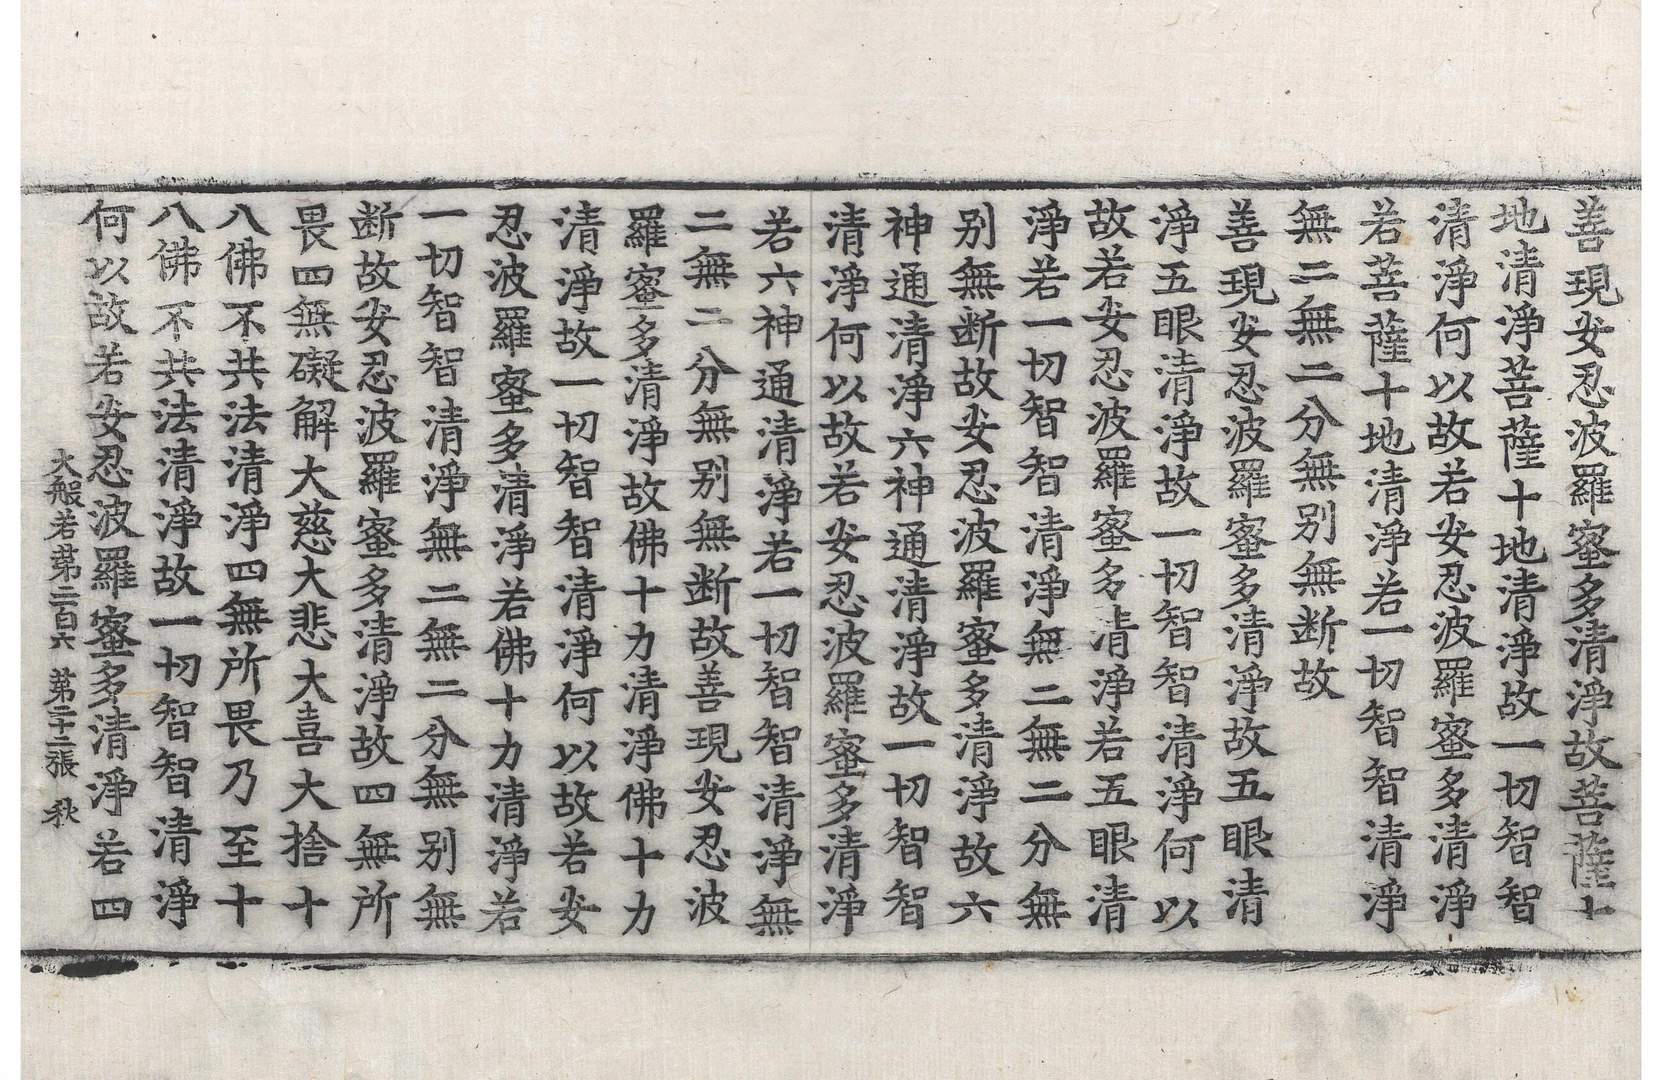 善現安忍波羅蜜多清淨故菩薩十
地清淨菩薩十地清淨故一切智智
清淨何以故若安忍波羅蜜多清淨
若菩薩十地清淨若一切智智清淨
無二無二分無别無断故
善現安忍波羅蜜多清淨故五眼清
淨五眼清淨故一切智智清淨何以
故若安忍波羅蜜多清淨若五眼清
淨若一切智智清淨無二無二分無
别無断故安忍波羅蜜多清淨故六
神通清淨六神通清淨故一切智智
清淨何以故若安忍波羅蜜多清淨
若六神通清淨若一切智智清淨無
二無二分無别無断故善現安忍波
羅蜜多清淨故佛十力清淨佛十力
清淨故一切智智清淨何以故若安
忍波羅蜜多清淨若佛十力清淨若
一切智智清淨無二無二分無别無
断故安忍波羅蜜多清淨故四無所
畏四無礙解大慈大悲大喜大捨十
八佛不共法清淨四無所畏乃至十
八佛不共法清淨故一切智智清淨
何以故若安忍波羅蜜多清淨若四
大般若苐二百六 苐二十二張 秋